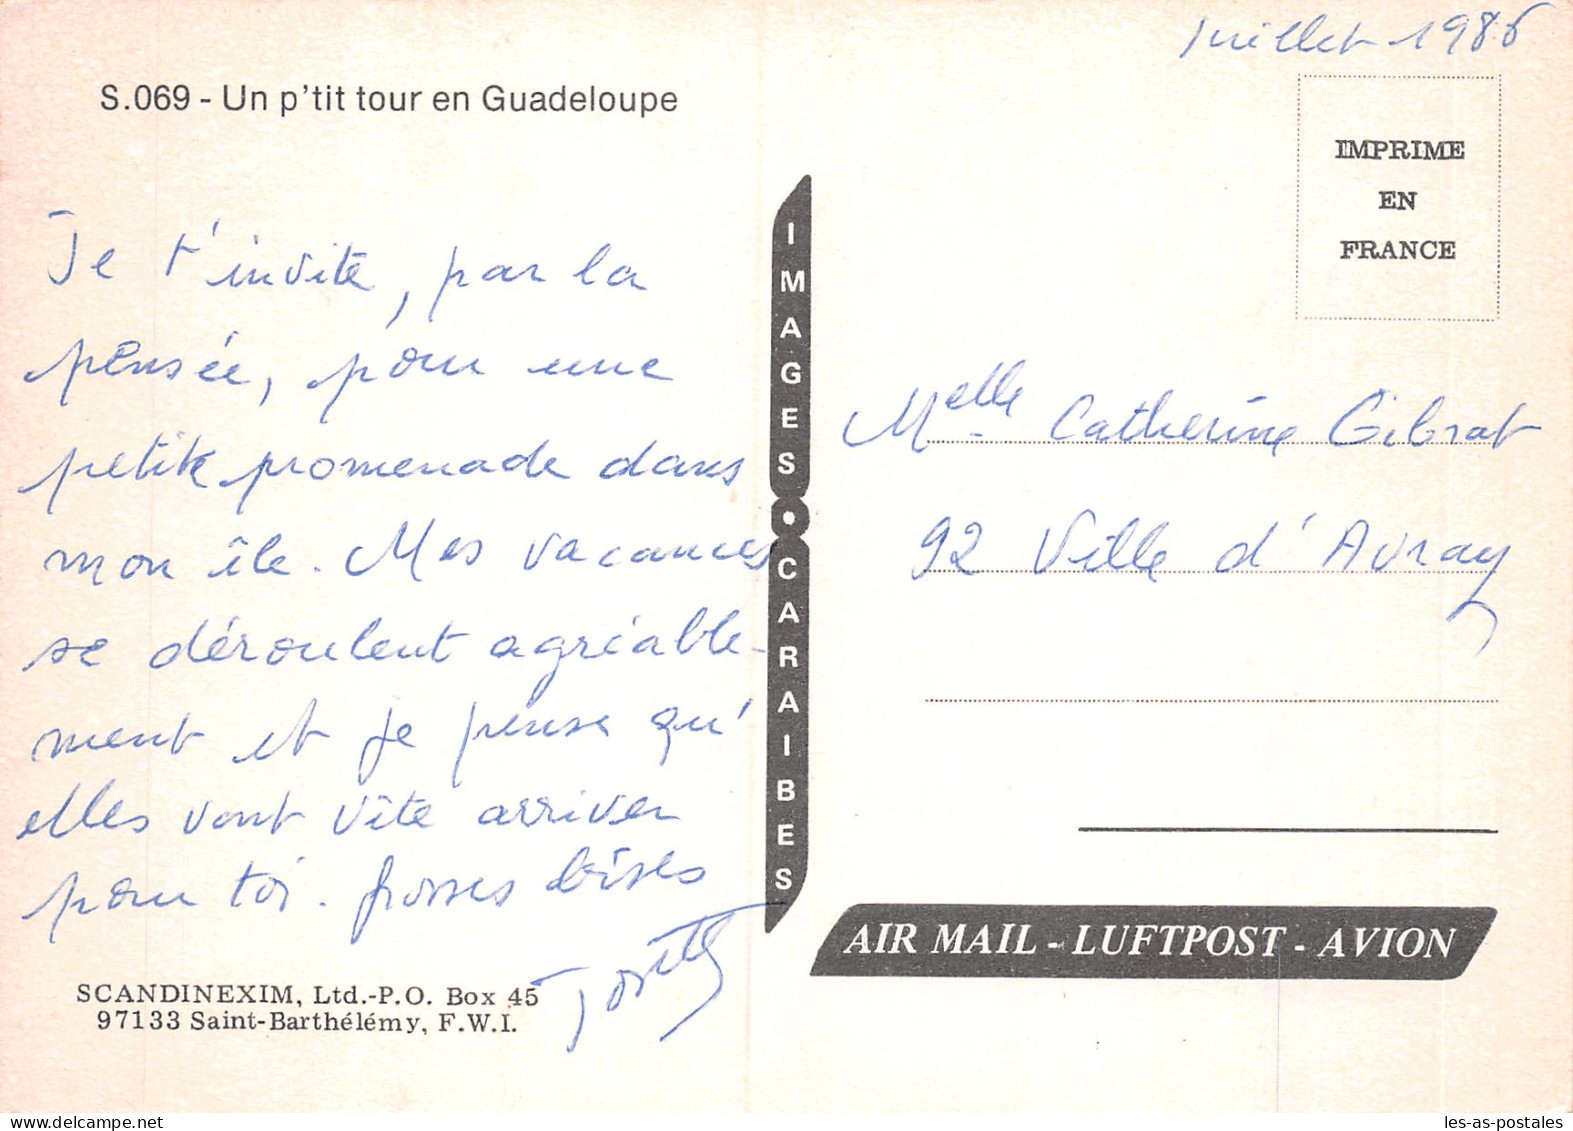 Juillet 1986
S.069 - Un p'tit tour en Guadeloupe
IMPRIME
EN
FRANCE
Je t'invite, par la
pensée, pour une
petite promenade dans
mon île. Mes vacances
se déroulent agréable-
ment et je pense qu'
elles vont vite arriver
pour toi. Grosses bises
IMAGES • CARAIBES
Melle Catherine Gibrat
92 Ville d'Avray
AIR MAIL - LUFTPOST - AVION
SCANDINEXIM, Ltd.-P.O. Box 45
97133 Saint-Barthélémy, F.W.I.
les-as-postales